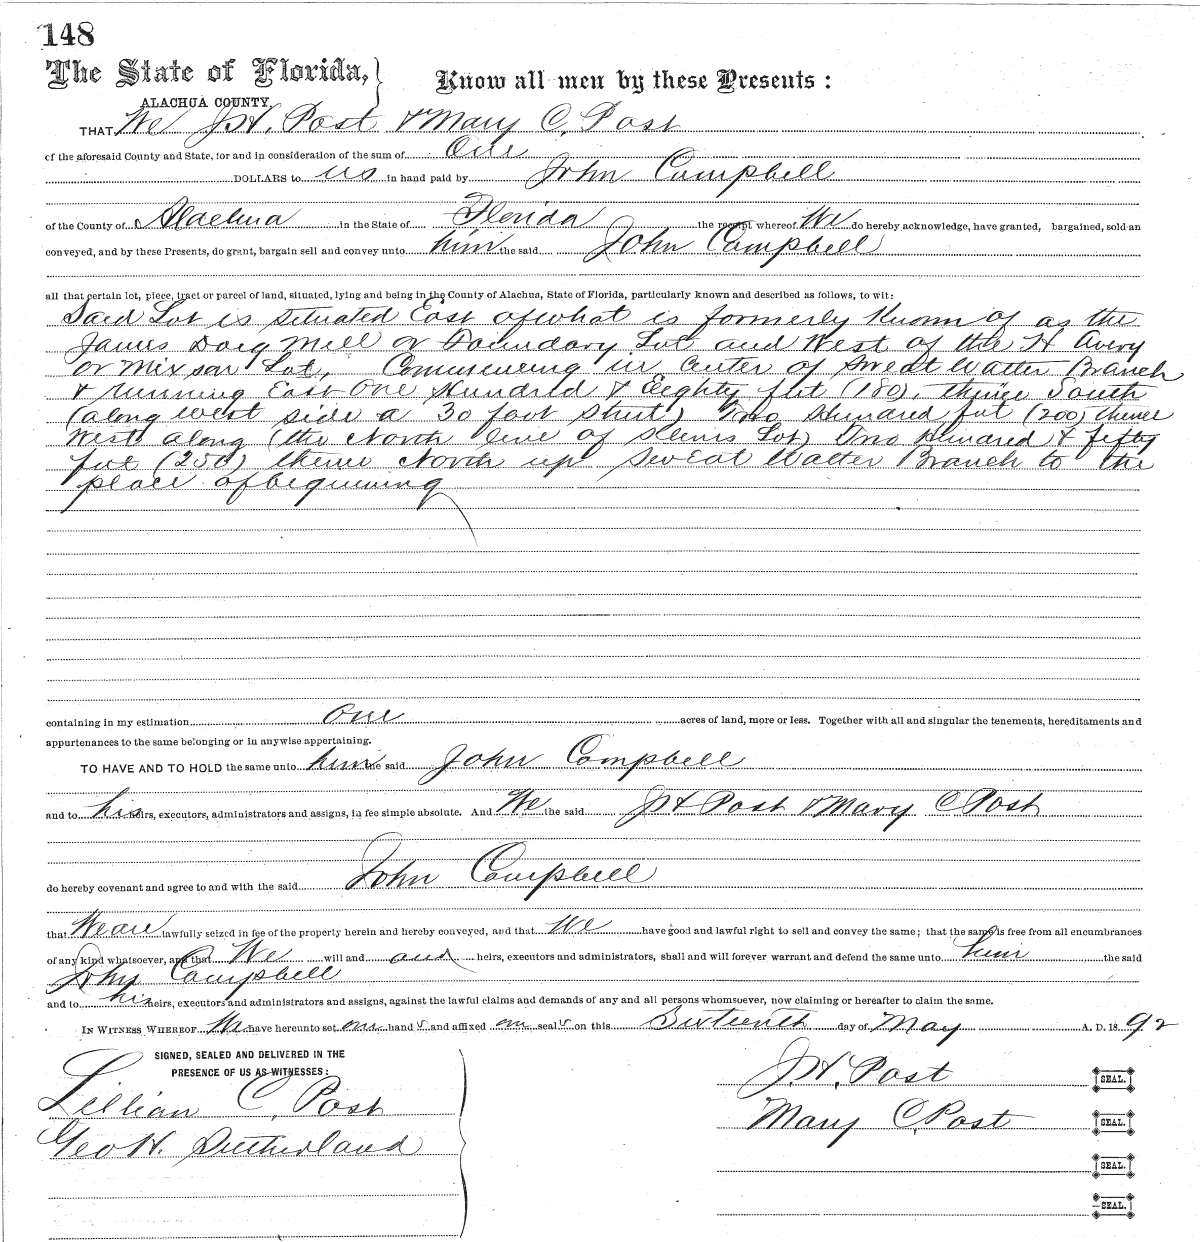 148
The State of Florida, Know all men by these Presents:
ALACHUA COUNTY.
THAT We J.H. Post & Mary C. Post
of the aforesaid County and State, for and in consideration of the sum of One
DOLLARS to us in hand paid by John Campbell
of the County of Alachua in the State of Florida the receipt whereof We do hereby acknowledge, have granted, bargained, sold an
conveyed, and by these Presents, do grant, bargain sell and convey unto him the said John Campbell
all that certain lot, piece, tract or parcel of land, situated, lying and being in the County of Alachua, State of Florida, particularly known and described as follows, to wit:
Said Lot is situated East of what is formerly Known of as the
James Doig Mill or Foundary Lot and West of the H Avery
or Mixsar Lot, Commencing in Center of Sweat Watter Branch
& running East One Hundred & Eeghty feet (180), thence South
(along west side a 30 foot street) Two Hundred feet (200) thence
West along (the North line of Lot) Two Hundred & fifty
feet (250) thence North up Sweat Watter Branch to the
place of beginning
containing in my estimation one acres of land, more or less. Together with all and singular the tenements, hereditaments and
appurtenances to the same belonging or in anywise appertaining.
TO HAVE AND TO HOLD the same unto him the said John Campbell
and to his heirs, executors, administrators and assigns, in fee simple absolute. And We the said J H Post & Mary C Post
do hereby covenant and agree to and with the said John Campbell
that We are lawfully seized in fee of the property herein and hereby conveyed, and that We have good and lawful right to sell and convey the same; that the same is free from all encumbrances
of any kind whatsoever, and that We will and our heirs, executors and administrators, shall and will forever warrant and defend the same unto him the said
John Campbell
and to his heirs, executors and administrators and assigns, against the lawful claims and demands of any and all persons whomsoever, now claiming or hereafter to claim the same.
IN WITNESS WHEREOF We have hereunto set our hand s and affixed our seal s on this Sixteenth day of May A. D. 18 92
SIGNED, SEALED AND DELIVERED IN THE
PRESENCE OF US AS WITNESSES:
J.H. Post SEAL.
Lillian C. Post
Mary C. Post SEAL.
Geo H. Sutherland
SEAL.
SEAL.